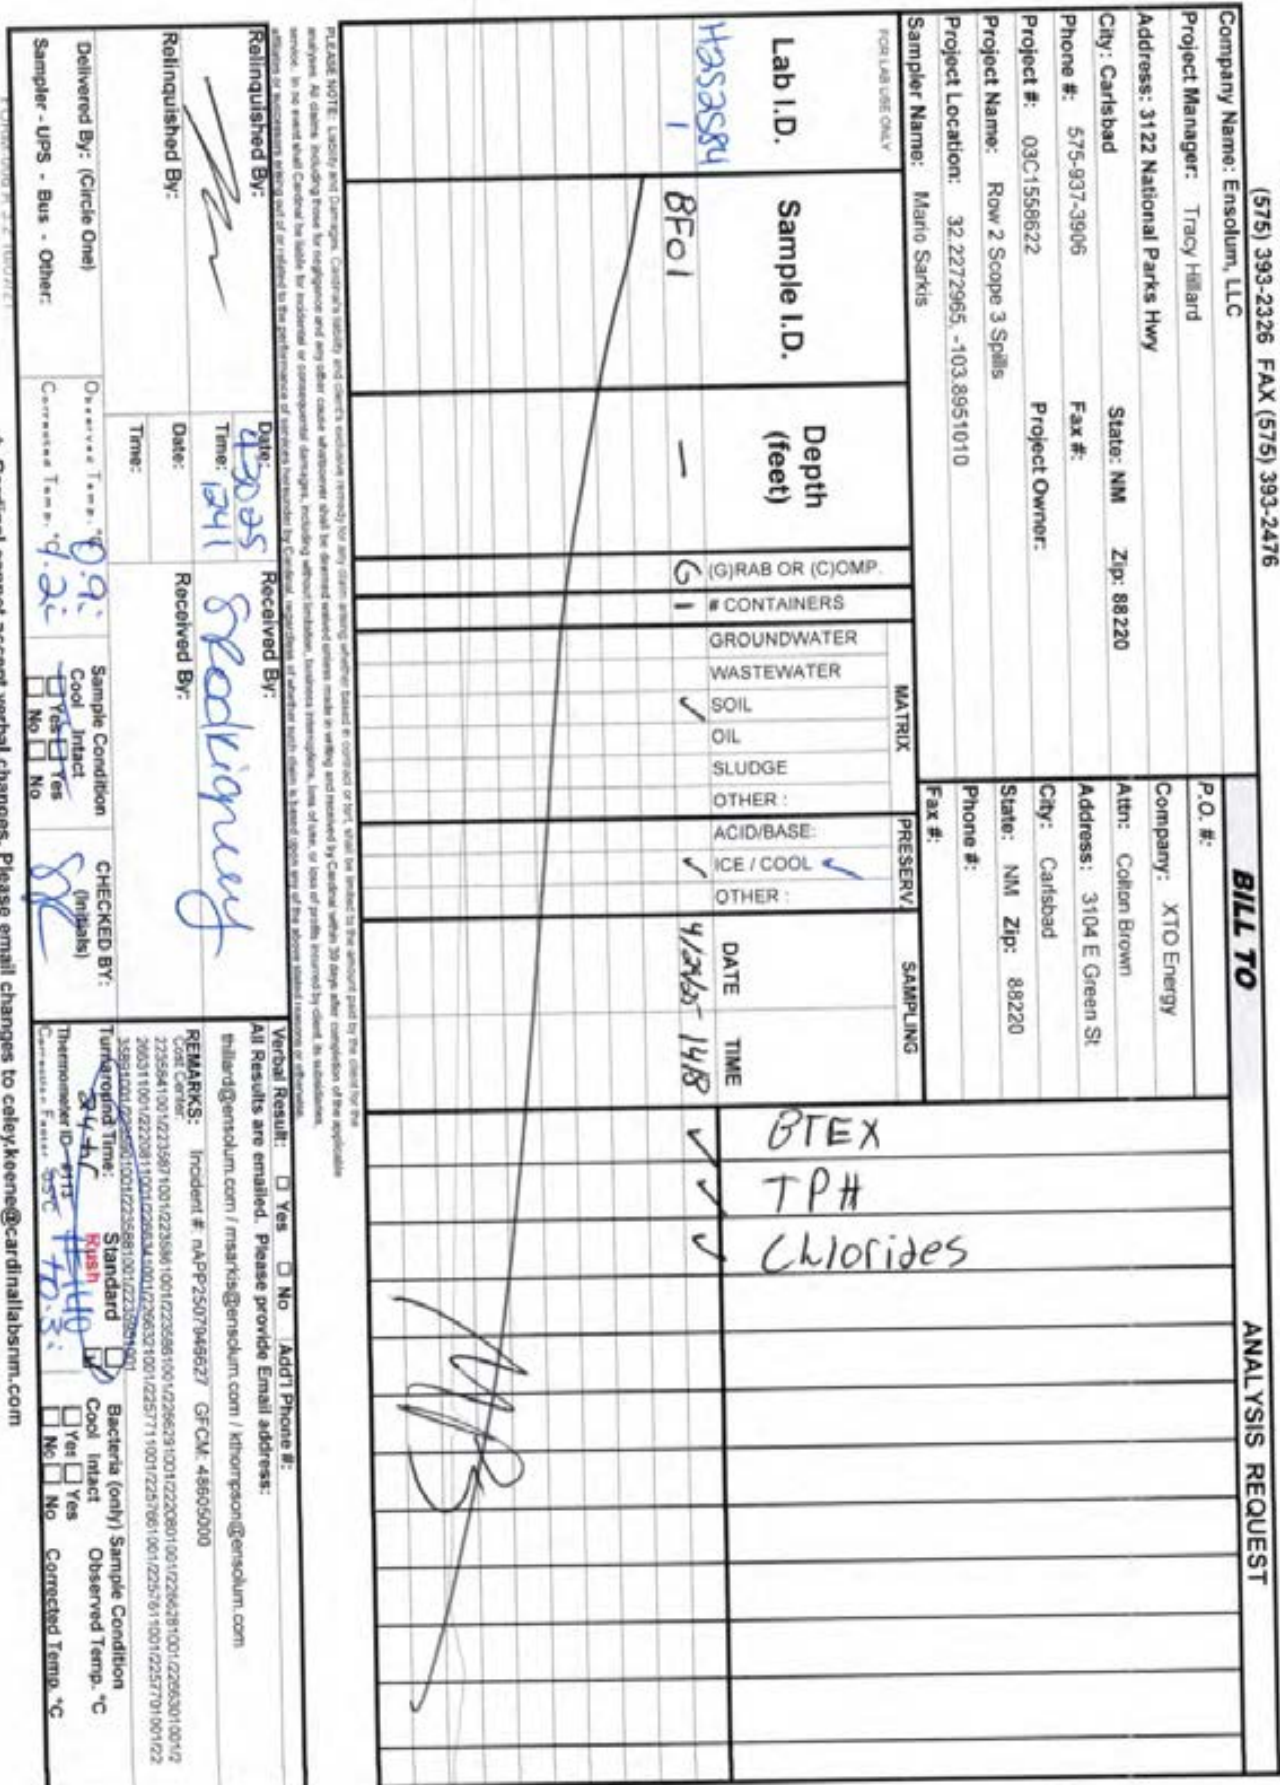 (575) 393-2326 FAX (575) 393-2476
Company Name: Ensolum, LLC
Project Manager: Tracy Hillard
Address: 3122 National Parks Hwy
City: Carlsbad State: NM Zip: 88220
Phone #: 575-937-3906 Fax #:
Project #: 03C1558622 Project Owner:
Project Name: Row 2 Scope 3 Spills
Project Location: 32.2272965, -103.8951010
Sampler Name: Mario Sarkis
BILL TO
P.O. #:
Company: XTO Energy
Attn: Colton Brown
Address: 3104 E Green St
City: Carlsbad
State: NM Zip: 88220
Phone #:
Fax #:
ANALYSIS REQUEST
BTEX
TPH
Chlorides
FOR LAB USE ONLY
Lab I.D.
Sample I.D.
Depth
(feet)
(G)RAB OR (C)OMP.
# CONTAINERS
MATRIX
GROUNDWATER
WASTEWATER
SOIL
OIL
SLUDGE
OTHER :
PRESERV.
ACID/BASE:
ICE / COOL ✓
OTHER :
SAMPLING
DATE TIME
H252584
1 BF01 — G 1 ✓ ✓ 1418 ✓ ✓ ✓
PLEASE NOTE: Liability and Damages. Cardinal's liability and client's exclusive remedy for any claim arising whether based in contract or tort, shall be limited to the amount paid by the client for the
analyses. All claims, including those for negligence and any other cause whatsoever shall be deemed waived unless made in writing and received by Cardinal within 30 days after completion of the applicable
service. In no event shall Cardinal be liable for incidental or consequental damages, including without limitation, business interruptions, loss of use, or loss of profits incurred by client, its subsidiaries,
affiliates or successors arising out of or related to the performance of services hereunder by Cardinal, regardless of whether such claim is based upon any of the above stated reasons or otherwise.
Relinquished By:
Date: 4-30-25
Time: 1241
Received By:
Relinquished By:
Date:
Time:
Received By:
Verbal Result: □ Yes □ No Add'l Phone #:
All Results are emailed. Please provide Email address:
thillard@ensolum.com / msarkis@ensolum.com / kthompson@ensolum.com
REMARKS: Incident #: nAPP2507946627 GFCM: 48605000
Cost Center:
Delivered By: (Circle One)
Sampler - UPS - Bus - Other:
Observed Temp. °C 0.9
Corrected Temp. °C 1.2
Sample Condition
Cool Intact
□ Yes □ Yes
□ No □ No
CHECKED BY:
(Initials)
SR
Turnaround Time: Standard □
24 hr Rush
Thermometer ID #113 #140
Correction Factor +0.3
Bacteria (only) Sample Condition
Cool Intact Observed Temp. °C
□ Yes □ Yes
□ No □ No Corrected Temp. °C
Cardinal cannot accept verbal changes. Please email changes to celey.keene@cardinallabsnm.com